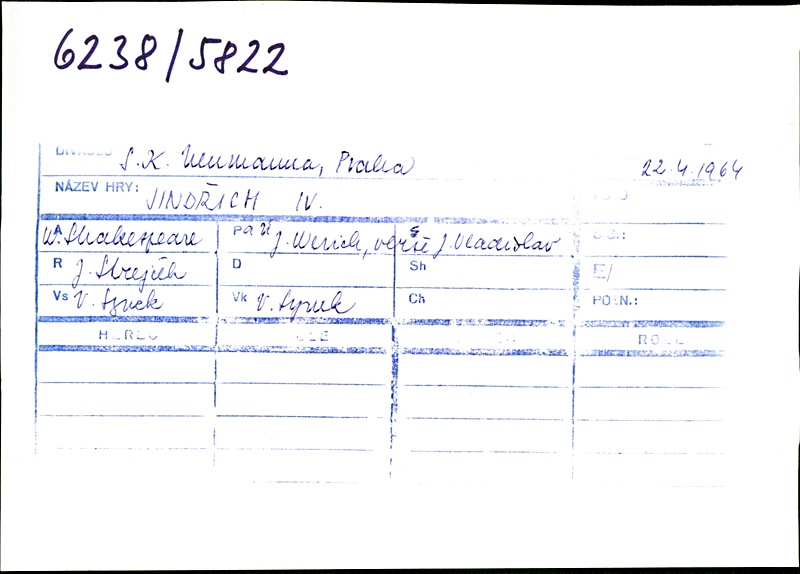 6238/5822
DIVADLO S. K. Neumanna, Praha 22.4.1964
NÁZEV HRY: JINDŘICH IV.
A W. Shakespeare Pa ú J. Werich, verše J. Vladislav S.G.:
R J. Strejček D Sh E/
Vs V. Synek Vk V. Synek Ch PO.N.:
HEREC ROLE ROLE